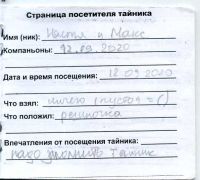 Страница посетителя тайника
Имя (ник): Настя и Макс
Компаньоны: 12.09.2020
Дата и время посещения: 12 09 2020
Что взял: ничего (пусто =()
Что положил: резиночка
Впечатления от посещения тайника:
надо заполнить тайник